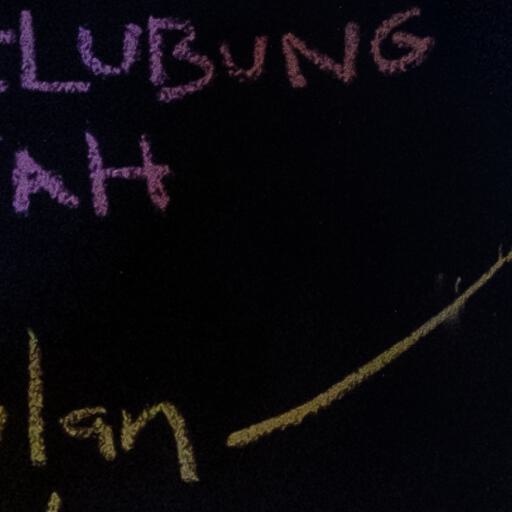 ELUBUNG
AH
lan